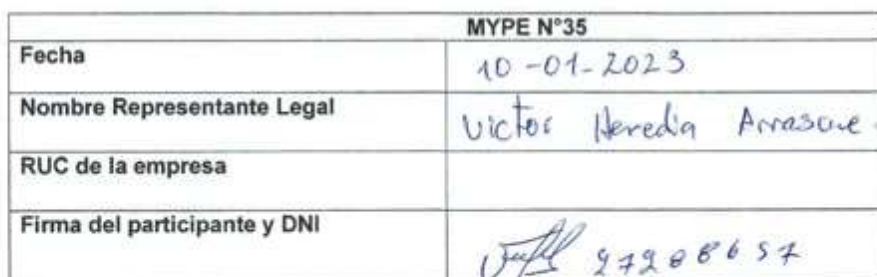 MYPE N°35
Fecha 10-01-2023
Nombre Representante Legal Victor Heredia
RUC de la empresa
Firma del participante y DNI